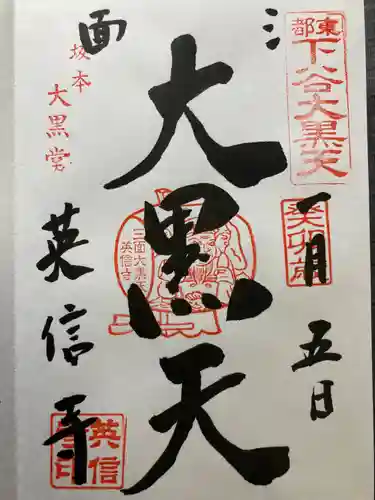 三面
東都
下谷大黒天
癸卯歳
一月五日
大黒天
三面大黒天
英信寺
坂本
大黒堂
英信寺
英信寺印